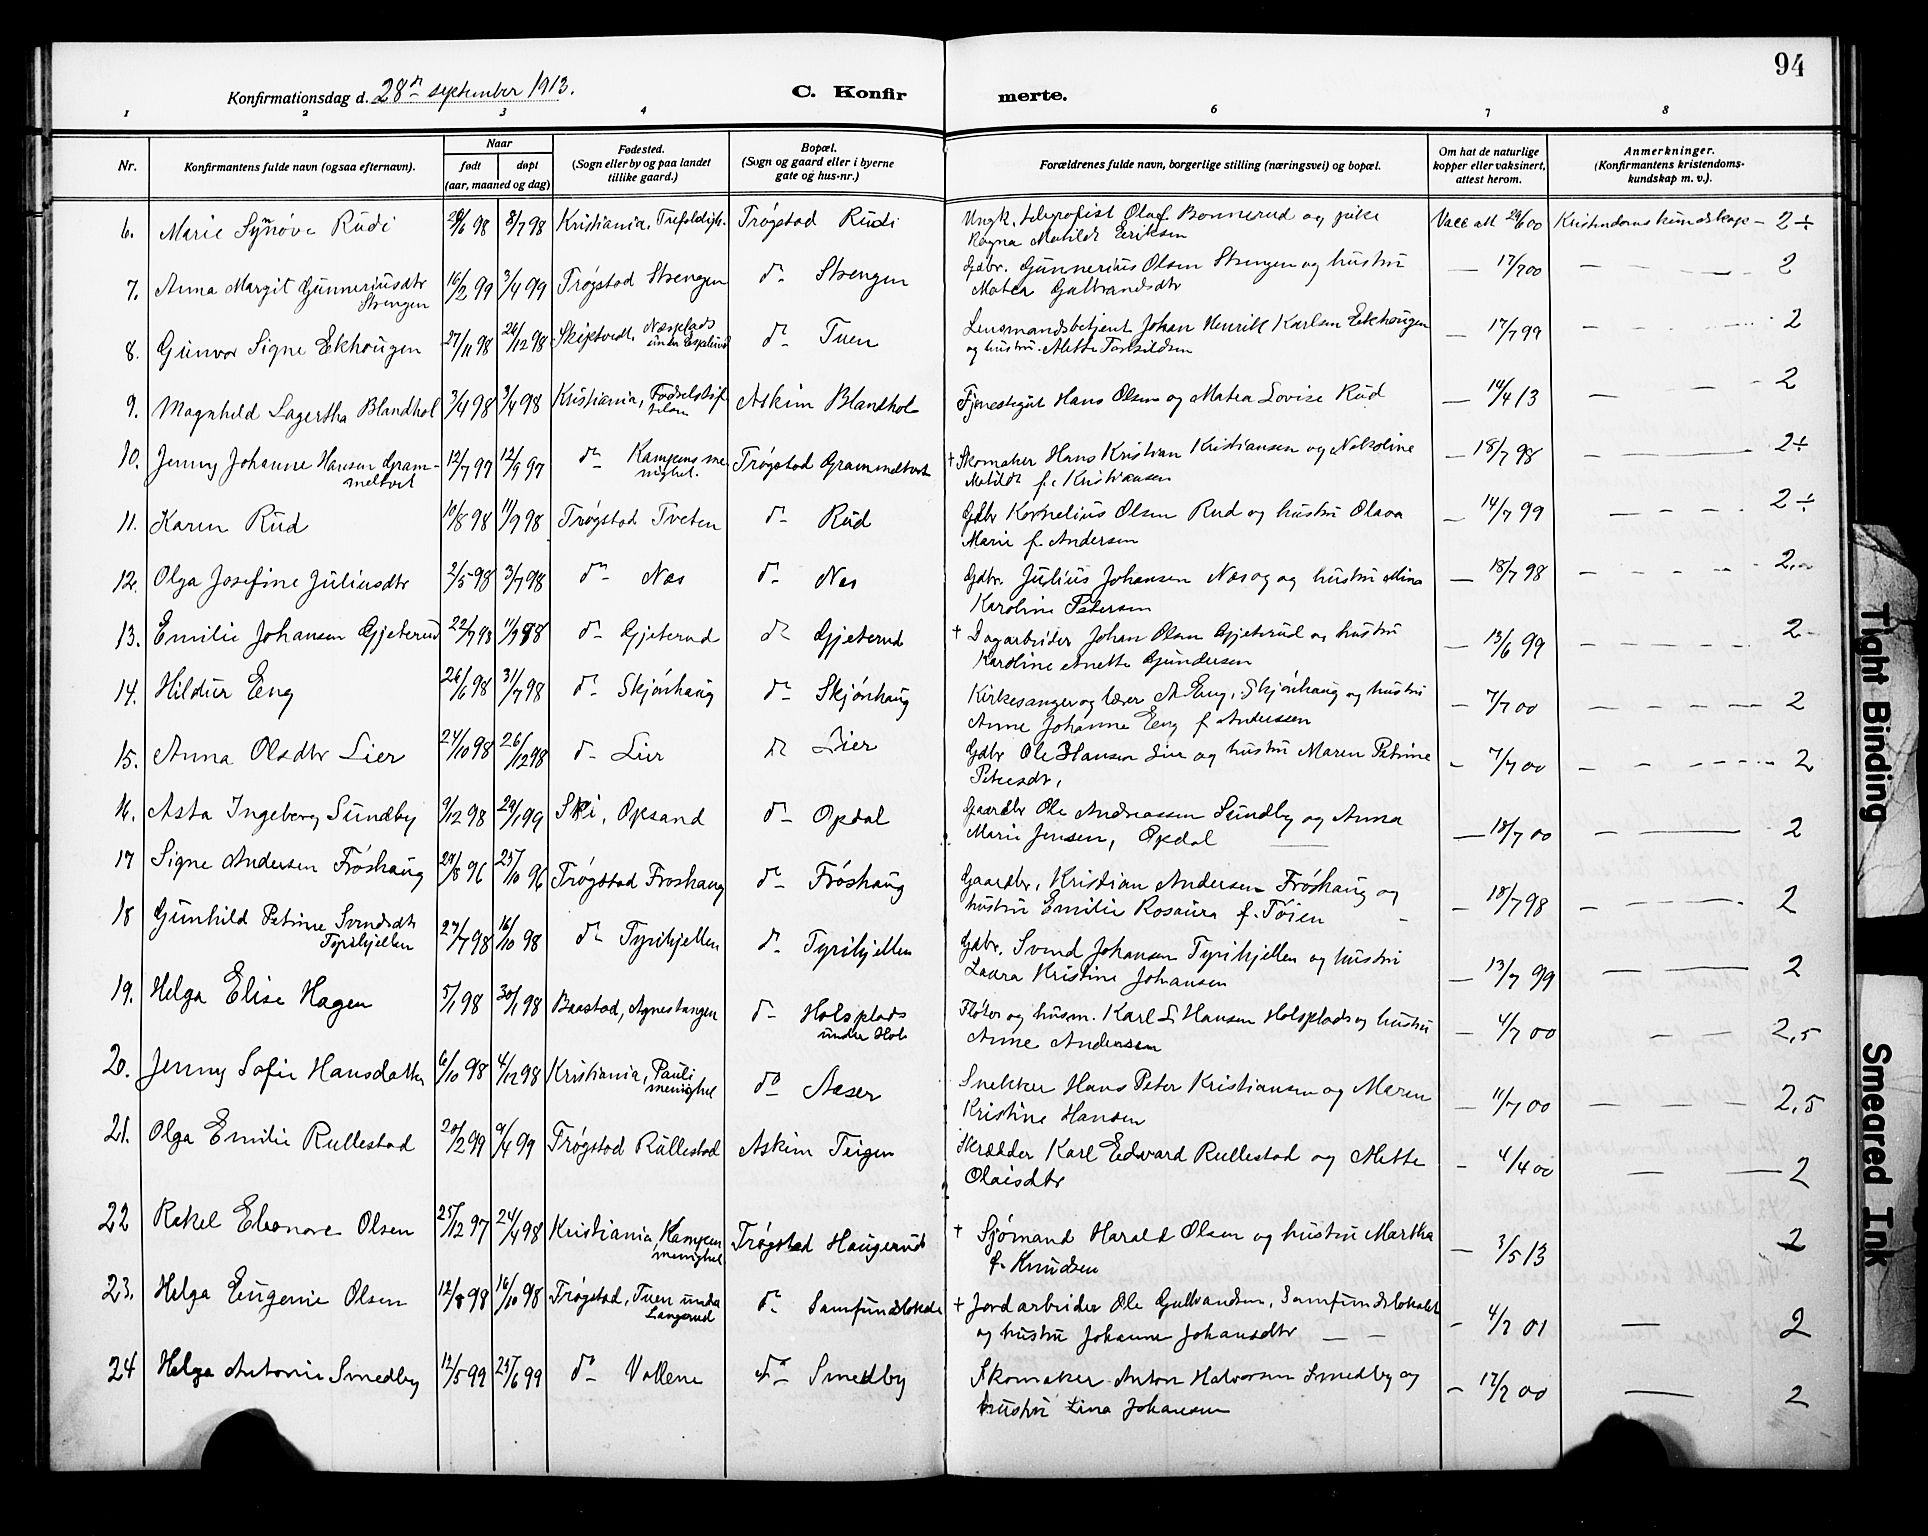 94
Konfirmationsdag d. 28de september 1913.
C. Konfir merte.
1 2 3 4 6 7 8
Nr. Konfirmantens fulde navn (ogsaa efternavn). Naar født døpt (aar, maaned og dag) Fødested. (Sogn eller by og paa landet tillike gaard.) Bopæl. (Sogn og gaard eller i byerne gate og hus-nr.) Forældrenes fulde navn, borgerlige stilling (næringsvei) og bopæl. Om hat de naturlige kopper eller vaksinert, attest herom. Anmerkninger. (Konfirmantens kristendoms-kundskap m. v.).
6. Marie Synnöve Rudi 8/7 98 Kristiania, Trefoldigh. Trøgstad Rudi Ungk. telegrafist Olaf Bonnerud og pike Vacc att 00 Kristendomskundskap - 2÷
Ragna Matilde Eriksen
7. Anna Margit Gunneriusdtr 16/2 99 3/4 99 Trøgstad Strengen do Strengen Gdbr. Gunnerius Olsen Strengen og hustru — 17/7 00 — 2
Strengen Matea Gulbrandsdtr
8. Gunvor Signe Ekhougen 27/11 98 26/12 98 Skiptvedt, Næsplads under do Tuen Lensmandsbetjent Johan Henrik Karlsen Eekhougen — 17/7 99 — 2
og hustru Mette Torkildsen
9. Magnhild Lagertha Blandhol 3/4 98 3/4 98 Kristiania, Fødselsstif telsen Askim Blandhol Tjenestegut Hans Olsen og Matea Lovise Rud — 14/4 13 — 2
10. Jenny Johanne Hansen Gram- 12/7 97 12/9 97 do Kampens me nighet. Trøgstad Grammeltvet † Skomaker Hans Kristian Kristiansen og Nikoline — 18/7 98 — 2÷
meltvet Matilde f. Kristiansen
11. Karen Rud 10/8 98 11/9 98 Trøgstad Tveten do Rud Gdbr Kornelius Olsen Rud og hustru Olava — 14/7 99 — 2÷
Marie f. Andersen
12. Olga Josefine Juliusdtr 2/5 98 3/7 98 do Næs do Næs Gdbr. Julius Johansen Næs og hustru Mina — 18/7 98 — 2
Karoline Petersen
13. Emilie Johansen Gjeterud 22/7 98 11/9 98 do Gjeterud do Gjeterud † Dagarbeider Johan Olsen Gjeterud og hustru — 13/6 99 — 2
Karoline Anette Gundersen
14. Hildur Eng 26/6 98 31/7 98 do Skjönhaug do Skjönhaug Kirkesanger og lærer A Eng, Skjönhaug og hustru — 7/7 00 — 2
Anne Johanne Eng f Anderssen
15. Anna Olsdtr Lier 24/10 98 26/12 98 do Lier do Lier Gdbr Ole Hansen Lier og hustru Maren Petrine — 7/7 00 — 2
Petersdtr,
16. Asta Ingeborg Sundby 9/12 98 29/1 99 Ski, Opsand do Opdal Gaardbr Ole Andreassen Sundby og Anna — 18/7 00 — 2
Marie Jensen, Opdal
17 Signe Andersen Fröshaug 29/8 96 25/10 96 Trøgstad Froshaug do Fröshaug Gaardbr. Kristian Andersen Fröshaug og — 18/7 98 — 2
hustru Emilie Rosaura f. Töien
18 Gunhild Petrine Svendsdtr 27/7 98 16/10 98 do Tyrihjellen do Tyrihjellen Gdbr. Svend Johansen Tyrihjellen og hustru — 13/7 99 — 2
Tyrihjellen Laura Kristine Johansen
19. Helga Elise Hagen 5/1 98 30/1 98 Baastad, Agnestangen do Holsplads under Hol Fløter og husm. Karl L Hansen Holsplads og hustru — 4/7 00 — 2,5
Anne Andersen
20. Jenny Sofie Hansdatter 6/10 98 4/12 98 Kristiania, Pauli menighet do Aaser Snekker Hans Peter Kristiansen og Maren — 11/7 00 — 2,5
Kristine Hansen
21. Olga Emilie Rullestad 20/2 99 9/4 99 Trøgstad Rullestad Askim Teigen Skrædder Karl Edvard Rullestad og Mette — 4/4 00 — 2
Olaisdtr
22 Rakel Eleonore Olsen 25/12 97 24/4 98 Kristiania, Kampen menighet Trøgstad Haugerud † Sjömand Harald Olsen og hustru Martha — 3/5 13 2
f. Knudsen
23. Helga Eugenie Olsen 12/8 98 16/10 98 Trøgstad, Tuen under Langerud do Samfundslokale † Jordarbeider Ole Gulbrandsen, Samfundslokalet — 4/7 01 — 2
og hustru Johanne Johansdtr
24 Helga Antonie Smedby 12/5 99 25/6 99 do Vollene do Smedby Skomaker Anton Halvorsen Smedby og — 17/7 00 — 2
hustru Lina Johansen
Tight Binding
Smeared Ink